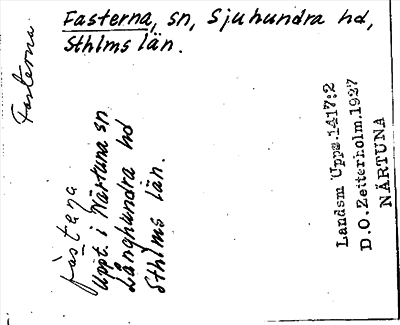 Fasterna
Fasterna, sn, Sjuhundra hd,
Sthlms län.
fàstena
Uppt. i Närtuna sn
Långhundra hd
Sthlms län.
Landsm Upps.1417:2
D.O.Zetterholm.1927
NÄRTUNA